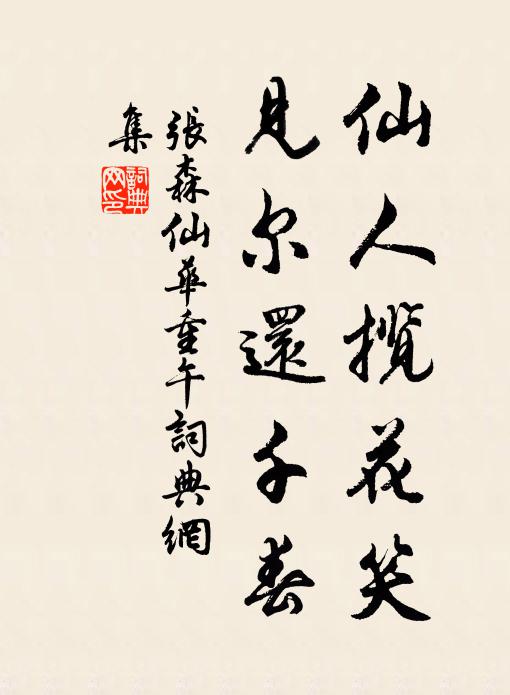 仙人攬花笑
見尔還千春
張森仙華重午詞典網
集
詞典网印